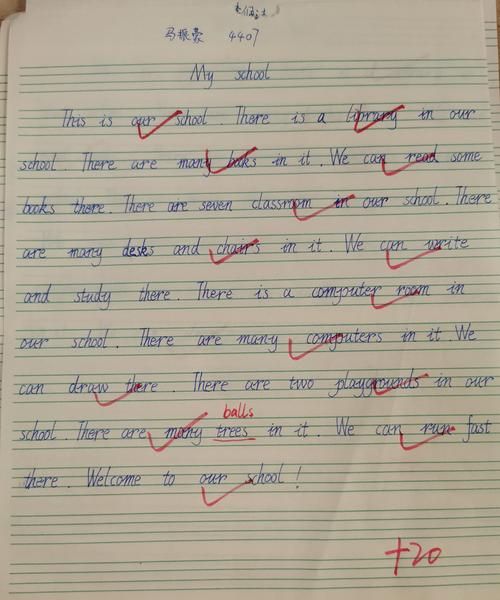 马振豪 4407
My school
This is our school. There is a library in our
school. There are many boks in it. We can read some
books there. There are seven classroom in our school. There
are many desks and chairs in it. We can write
and study there. There is a computer room in
our school. There are many computers in it. We
can draw there. There are two playgrounds in our
balls
school. There are many trees in it. We can run fast
there. Welcome to our school!
+20